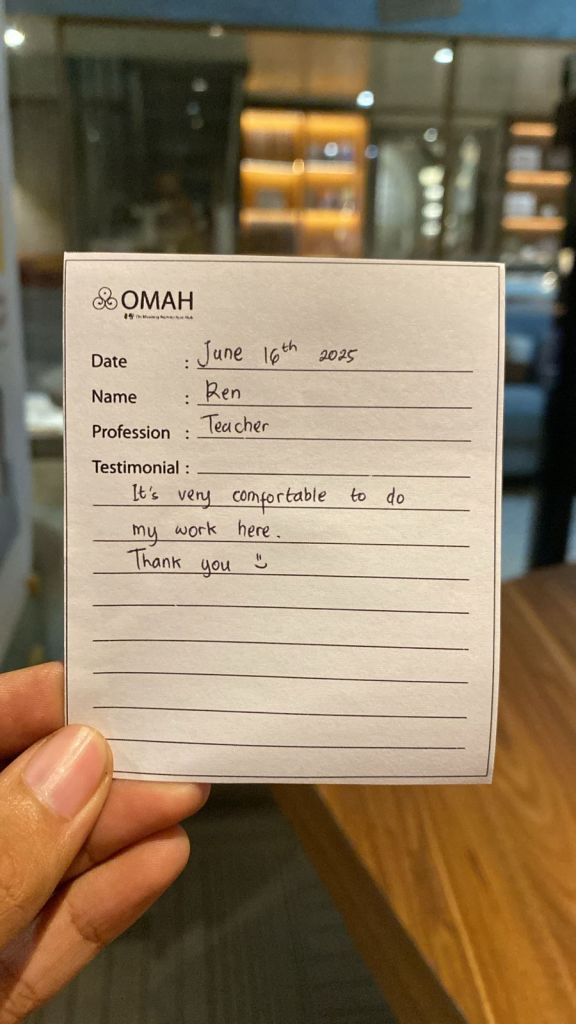 OMAH
Date : June 16th 2025
Name : Ren
Profession : Teacher
Testimonial :
It's very comfortable to do
my work here.
Thank you